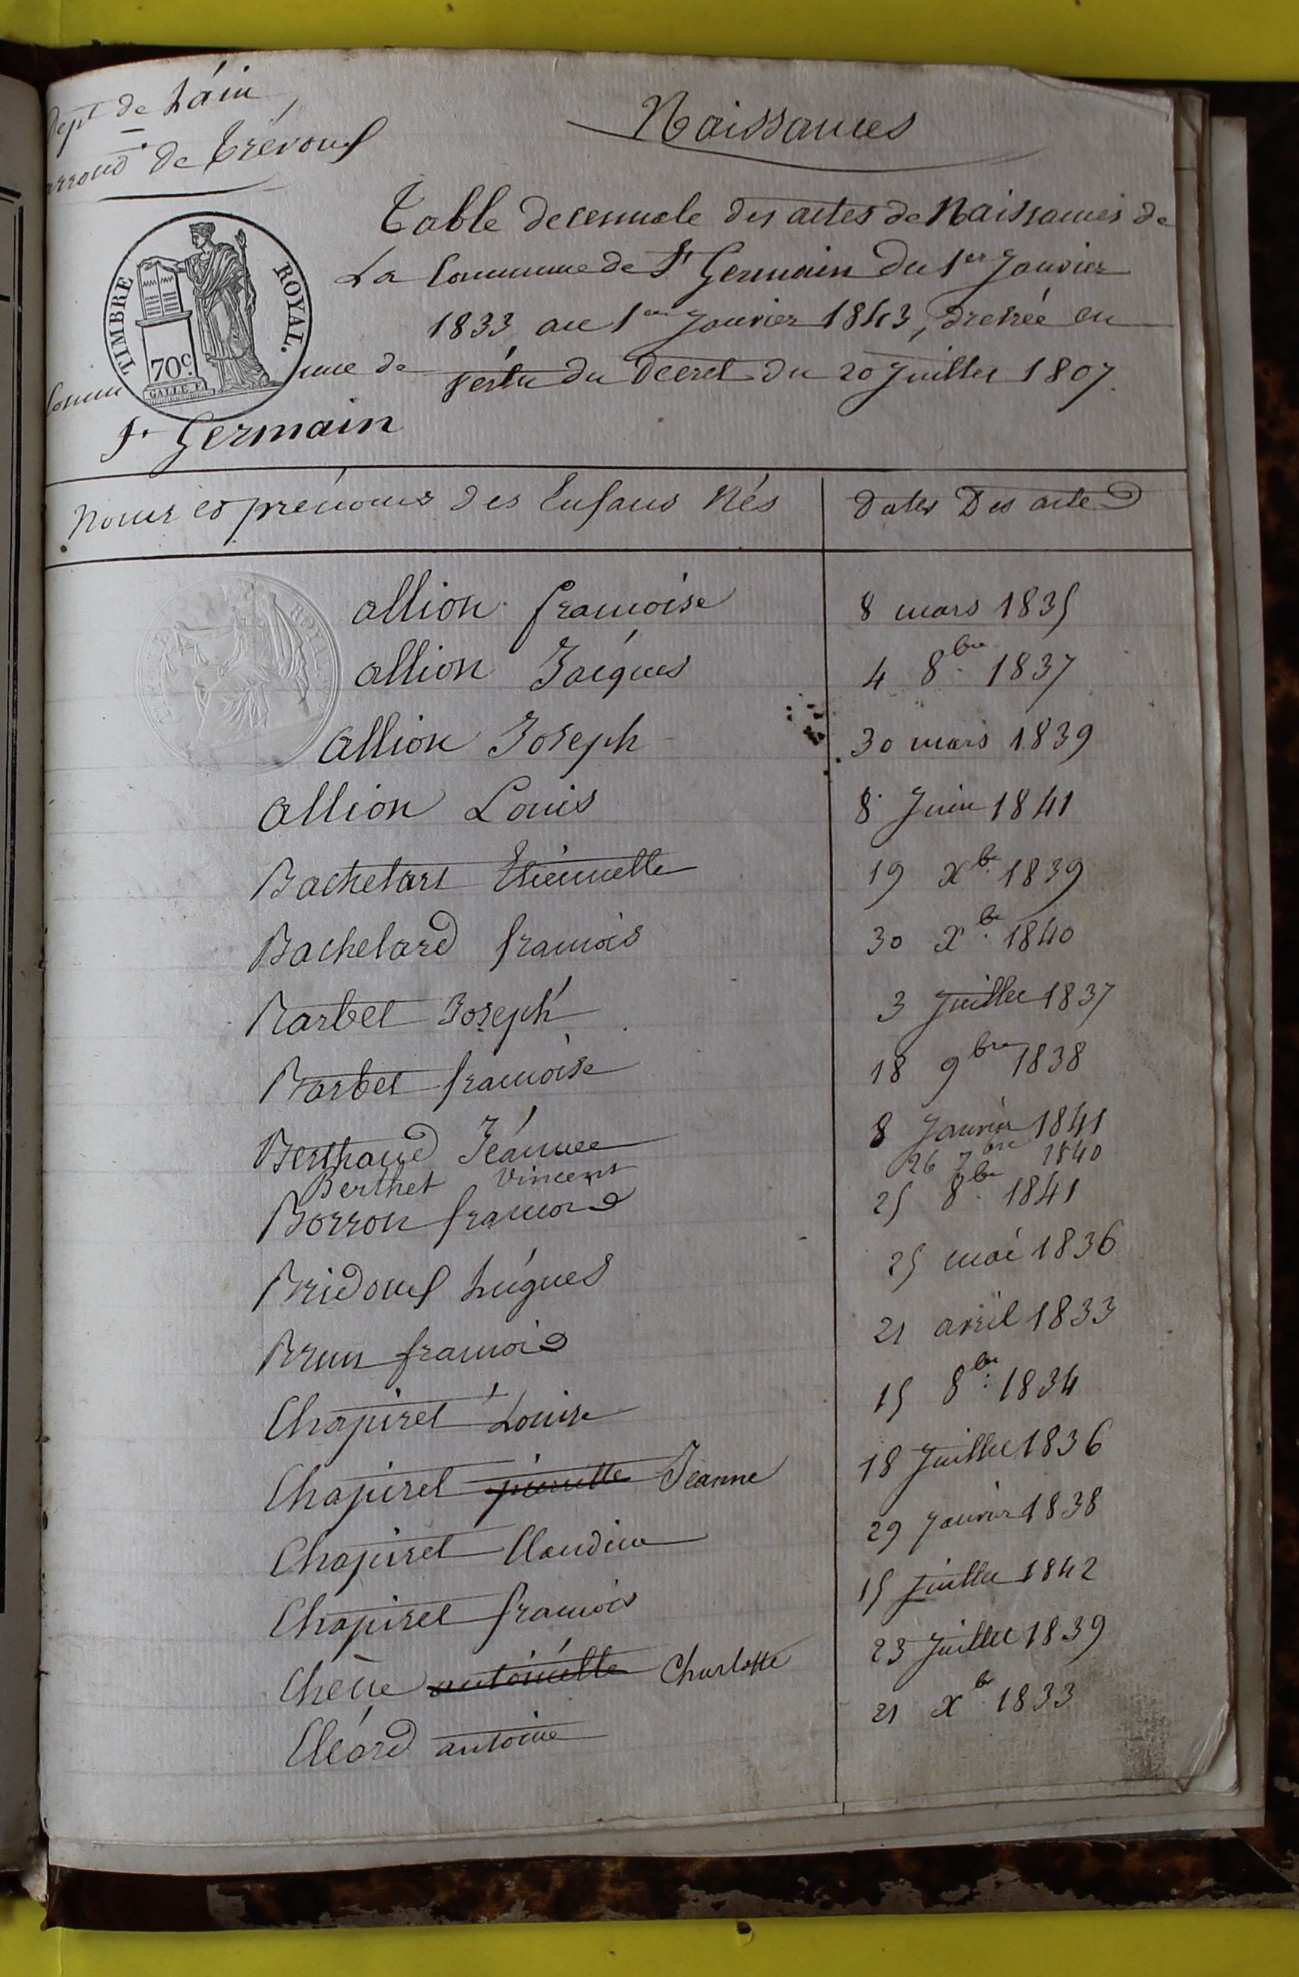 Dept de L'ain
arrond de Trévoux
Naissances
Table decennale des actes de Naissances de
La Commune de St Germain du 1er Janvier
1833 au 1er Janvier 1843, dressée en
vertu du Decret du 20 Juillet 1807.
TIMBRE ROYAL.
70c.
Commune de
St Germain
Noms et prénoms des Enfans Nés
dates Des actes
allion francoise 8 mars 1835
allion Jacques 4 8bre 1837
Allion Joseph 30 mars 1839
allion Louis 8 Juin 1841
Bachelard Etiennette 19 Xbre 1839
Bachelard francois 30 Xbre 1840
Barbet Joseph 3 Juillet 1837
Barbet francoise 18 9bre 1838
Berthaud Jeanne 8 Janvier 1841
Berthet Vincent 26 7bre 1840
Borron francois 25 8bre 1841
Bridoux hugues 25 mai 1836
Brun francois 21 avril 1833
Chapiret Louise 15 8bre 1834
Chapiret pierrette Jeanne 18 Juillet 1836
Chapiret Claudine 29 Janvier 1838
Chapiret francois 15 Juillet 1842
Chêne antoinette Charlotte 23 Juillet 1839
Cléard antoine 21 Xbre 1833